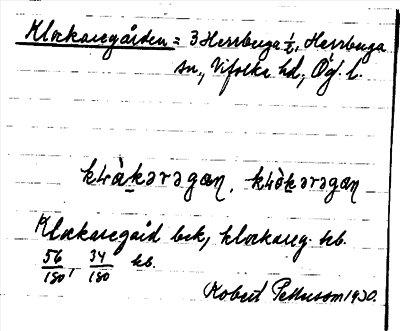 Klockaregården = 3 Herrberga 1/2, Herrberga
sn., Vifolka hd, Ög. l.
kḷɷ̀kərəgæn, kḷɷ̀kərəgæn
Klockaregård bek, klockareg. kb.
56/180, 34/180 kb.
Robert Pettersson 1930.